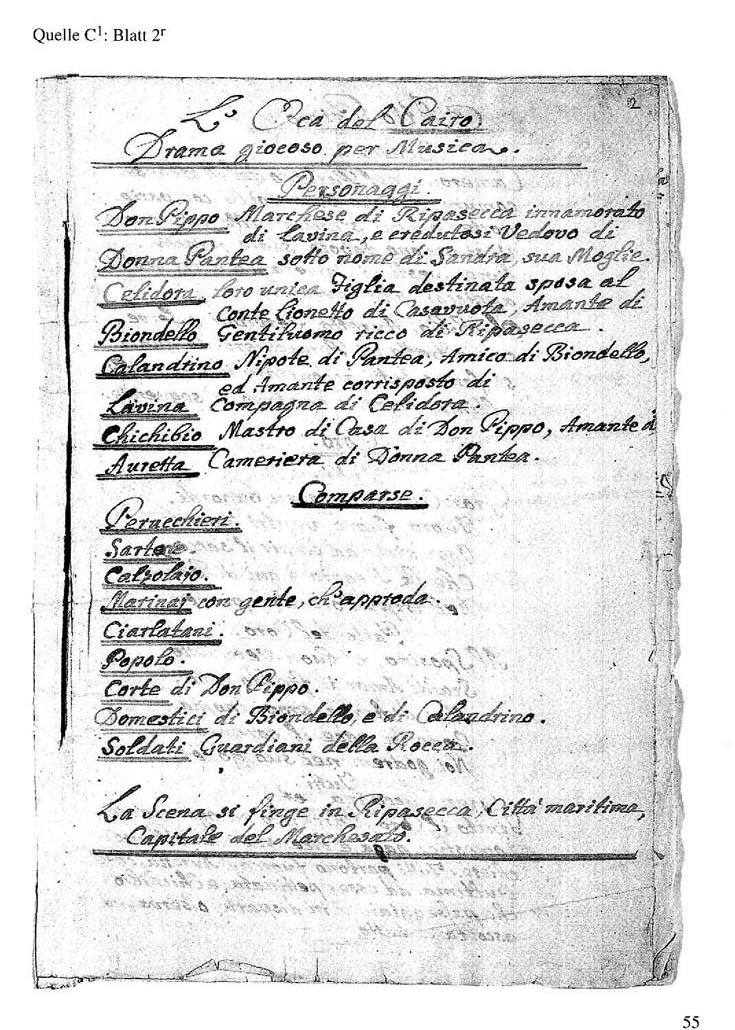 Quelle C1: Blatt 2r
2
L'Oca del Cairo
Drama giocoso per Musica.
Personaggi.
Don Pippo Marchese di Ripasecca innamorato
di Lavina, e credutosi Vedovo di
Donna Pantea sotto nome di Sandra, sua Moglie.
Celidora loro unica Figlia destinata sposa al
Conte Lionetto di Casavuota, Amante di
Biondello Gentiluomo ricco di Ripasecca.
Calandrino Nipote di Pantea, Amico di Biondello,
ed Amante corrisposto di
Lavina Compagna di Celidora.
Chichibio Mastro di Casa di Don Pippo, Amante d
Auretta Cameriera di Donna Pantea.
Comparse.
Peruchieri.
Sartor
Calzolajo.
Marinaj con gente, ch'approda.
Ciarlatani.
Popolo.
Corte di Don Pippo.
Domestici di Biondello, e di Calandrino.
Soldati Guardiani della Rocca.
La Scena si finge in Ripasecca, Città maritima,
Capitale del Marchesato.
55